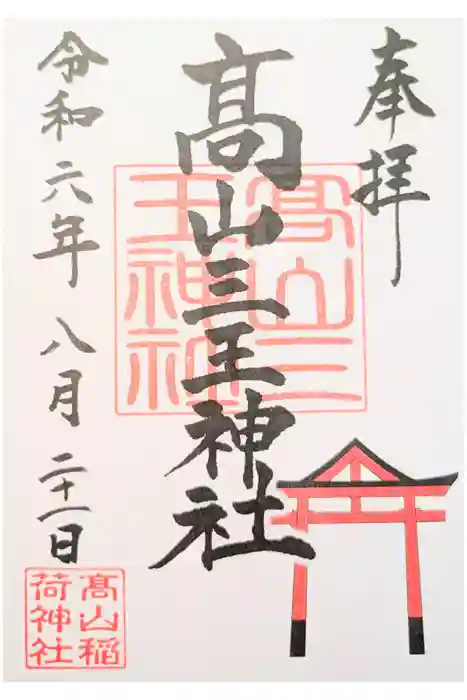 奉拝
髙山三王神社
髙山三
王神社
令和六年八月二十一日
髙山稲
荷神社